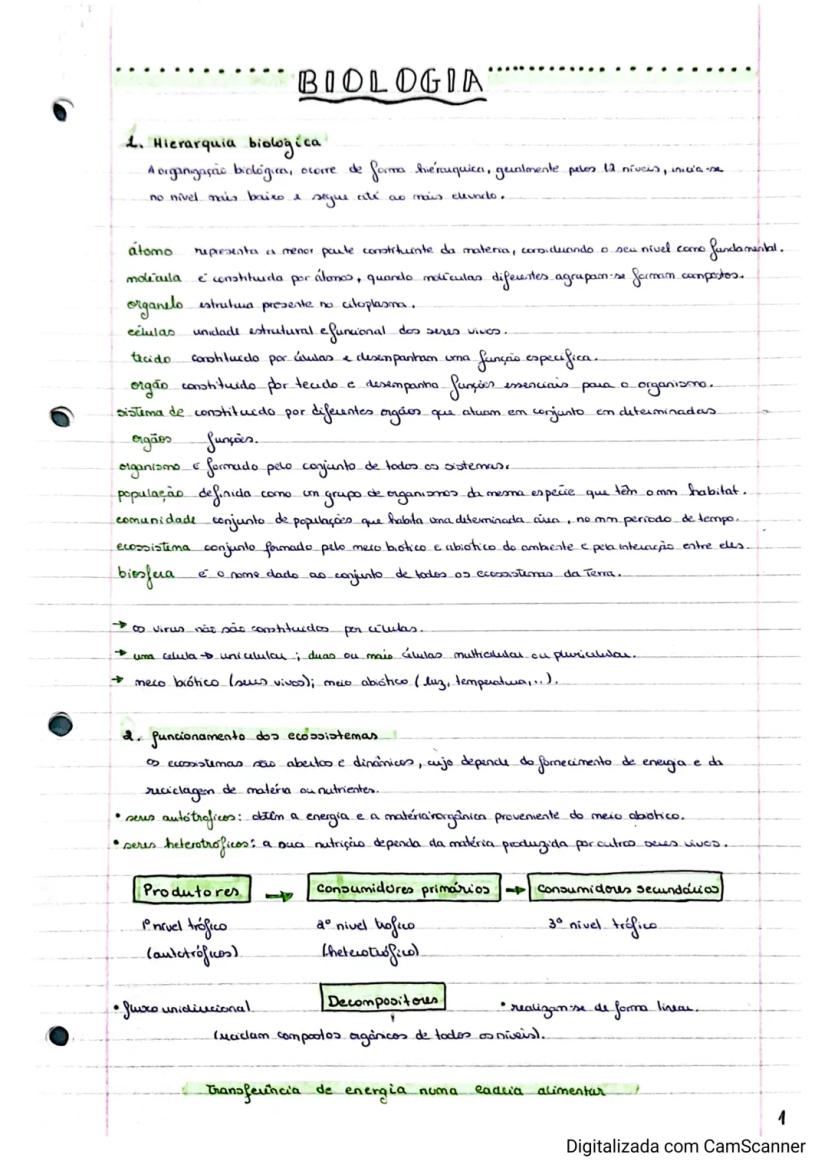 BIOLOGIA
1. Hierarquia biológica
A organização biológica, ocorre de forma hiérarquica, geralmente pelos 12 níveis, inicia-se
no nível mais baixo e segue até ao mais elevado.
átomo representa a menor parte constituinte da materia, considerando o seu nível como fundamental.
molécula é constituida por átomos, quando moléculas diferentes agrupam-se formam compostos.
organelo estrutura presente no citoplasma.
células unidade estrutural e funcional dos seres vivos.
tecido constituido por células e desempanham uma função especifica.
orgão constituido por tecido e desempanha funções essenciais para o organismo.
sistema de constituido por diferentes orgãos que atuam em conjunto em determinadas
orgãos funções.
organismo é formado pelo conjunto de todos os sistemas.
população definida como um grupo de organismos da mesma espécie que têm o mm habitat.
comunidade conjunto de populações que habita uma determinada área, no mm período de tempo.
ecossistema conjunto formado pelo meio biótico e abiotico do ambiente e pela interação entre eles.
biosfera é o nome dado ao conjunto de todos os ecossistemas da Terra.
→ os virus não são constituidos por células.
→ uma célula → unicelular; duas ou mais células multicelular ou pluricelular.
→ meio biótico (seres vivos); meio abiótico (luz, temperatura,...).
2. funcionamento dos ecossistemas
os ecossistemas são abertos e dinâmicos, cujo depende do fornecimento de energia e da
reciclagem de matéria ou nutrientes.
• seres autótroficos: obtêm a energia e a matéria inorgânica proveniente do meio abiotico.
• seres heterotróficos: a sua nutrição dependa da matéria produzida por outros seres vivos.
Produtores → consumidores primários → consumidores secundários
1º nível trófico 2º nivel trofico 3º nivel trófico
(autotróficos) (heterotrófico)
• fluxo unidirecional Decompositores • realizam-se de forma linear.
(reciclam compostos orgânicos de todos os níveis).
Transferência de energia numa cadeia alimentar
1
Digitalizada com CamScanner